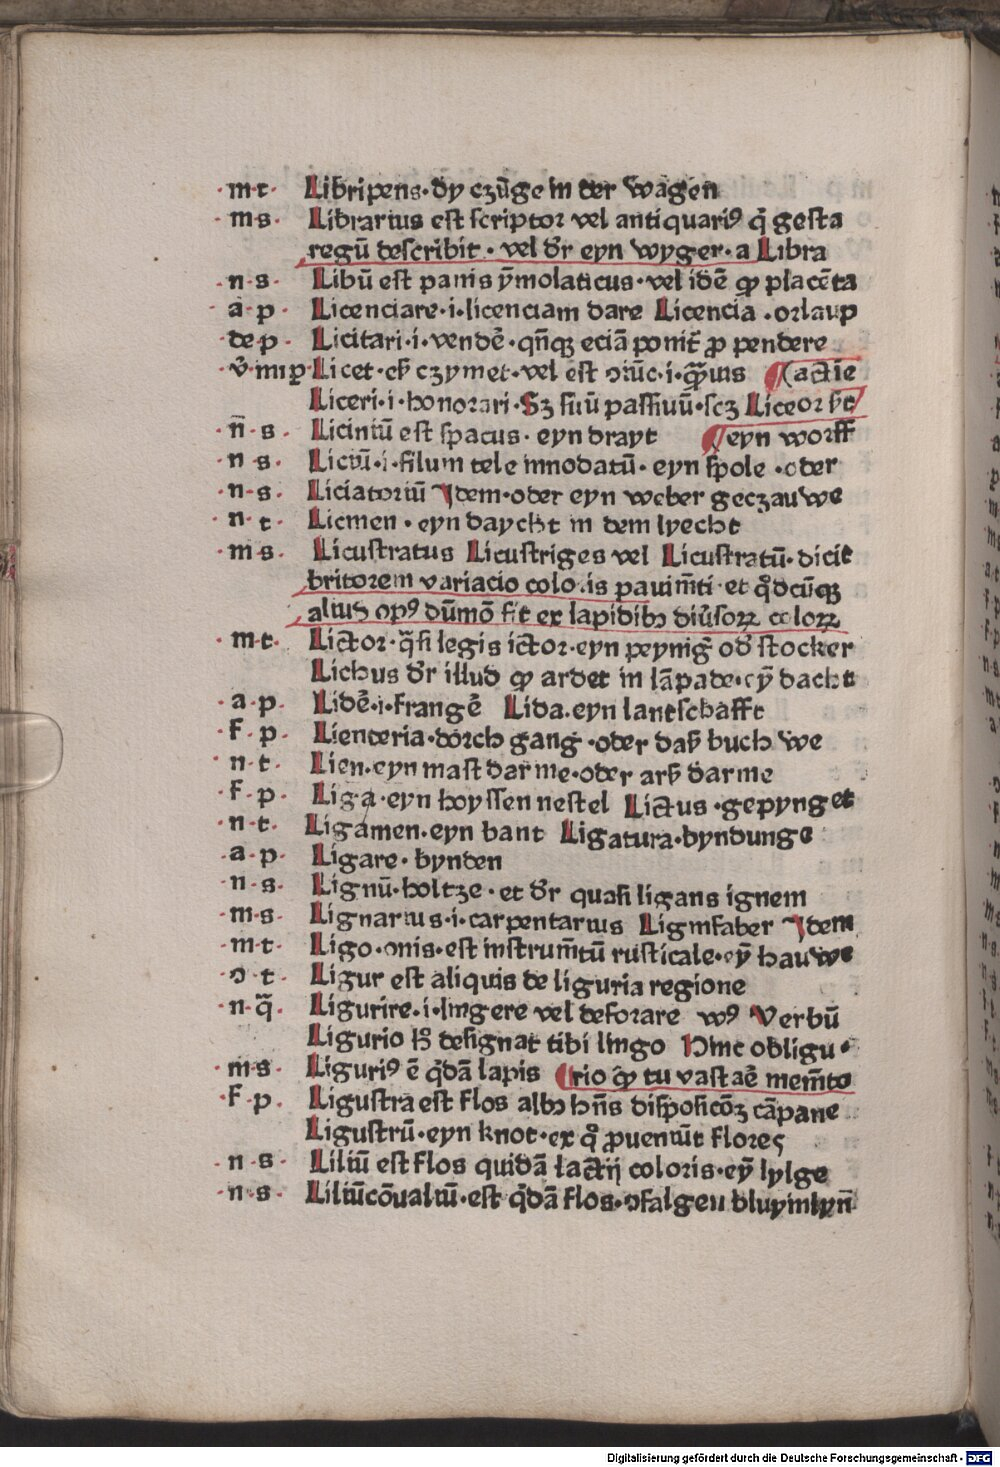 ·m·t· Libripens·dy czūge in der wagen
·m·s· Librarius est scriptor vel antiquariꝰ q̄ gesta
regū describit·vel dr̄ eyn wyger·a Libra
·n·s· Libū est panis ȳmolaticus·vel idē qp̄ placēta
·a·p· Licenciare·i·licenciam dare Licencia·orlaup
·de·p· Licitari·i·vendē·qn̄qꝫ eciā ponit̄ ꝓ pendere
Licet· czymet·vel est ·i·
actiē
Liceri·i·honorari·Sꝫ suū passiuū·scꝫ Liceor
·n̄·s· Liciniū est spacus·eyn drayt eyn worff
·n·s· Liciū·i·filum tele innodatū·eyn spole·oder
·n·s· Liciatoriū Idem·oder eyn weber geczauwe
·n·t· Licmen·eyn daycht in dem lyecht
·m·s· Licustratus Licustriges vel Licustratū·dicit
britorem variacio colo.is pauim̄ti·et qd̄cūqꝫ
aliud opꝰ dūmō fit ex lapidibꝫ diūsoꝝ coloꝝ
·m·t· Lictor·q̄si legis ictor·eyn peyniḡ od̄ stocker
Lichus dr̄ illud qp̄ ardet in lāpade·eȳ dacht
·a·p· Lidē·i·frangē Lida·eyn lantschafft
·f·p· Lienteria·dorch gang·oder daß buch we
·n·t· Lien·eyn mast darme·oder arß darme
·f·p· Liga·eyn hoyssen nestel Lictus·gepynget
·n·t· Ligamen·eyn bant Ligatura·byndunge
·a·p· Ligare·bynden
·n·s· Lignū·holtze·et dr̄ quasi ligans ignem
·m·s· Lignarius·i·carpentarius Lignifaber Idem
·m·t· Ligo·onis·est instrum̄tū rusticale·eȳ hauwe
·ↄ·t· Ligur est aliquis de liguria regione
·n·q̄· Ligurire·i·lingere vel deforare wꝰ Verbū
Ligurio ß designat tibi lingo Hinc obligu·
·m·s· Liguriꝰ ē qd̄ā lapis rio qp̄ tu vastaē mem̄to
·f·p· Ligustra est flos albꝫ hn̄s disposicōꝫ cāpane
Ligustrū·eyn knot·ex qͦ ꝓueniūt flores
·n·s· Liliū est flos quidā lactij coloris·eȳ lylge
·n·s· Liliūcōualiū·est qd̄ā flos·ↄfalgen bluymlyn̄
Digitalisierung gefördert durch die Deutsche Forschungsgemeinschaft - DFG